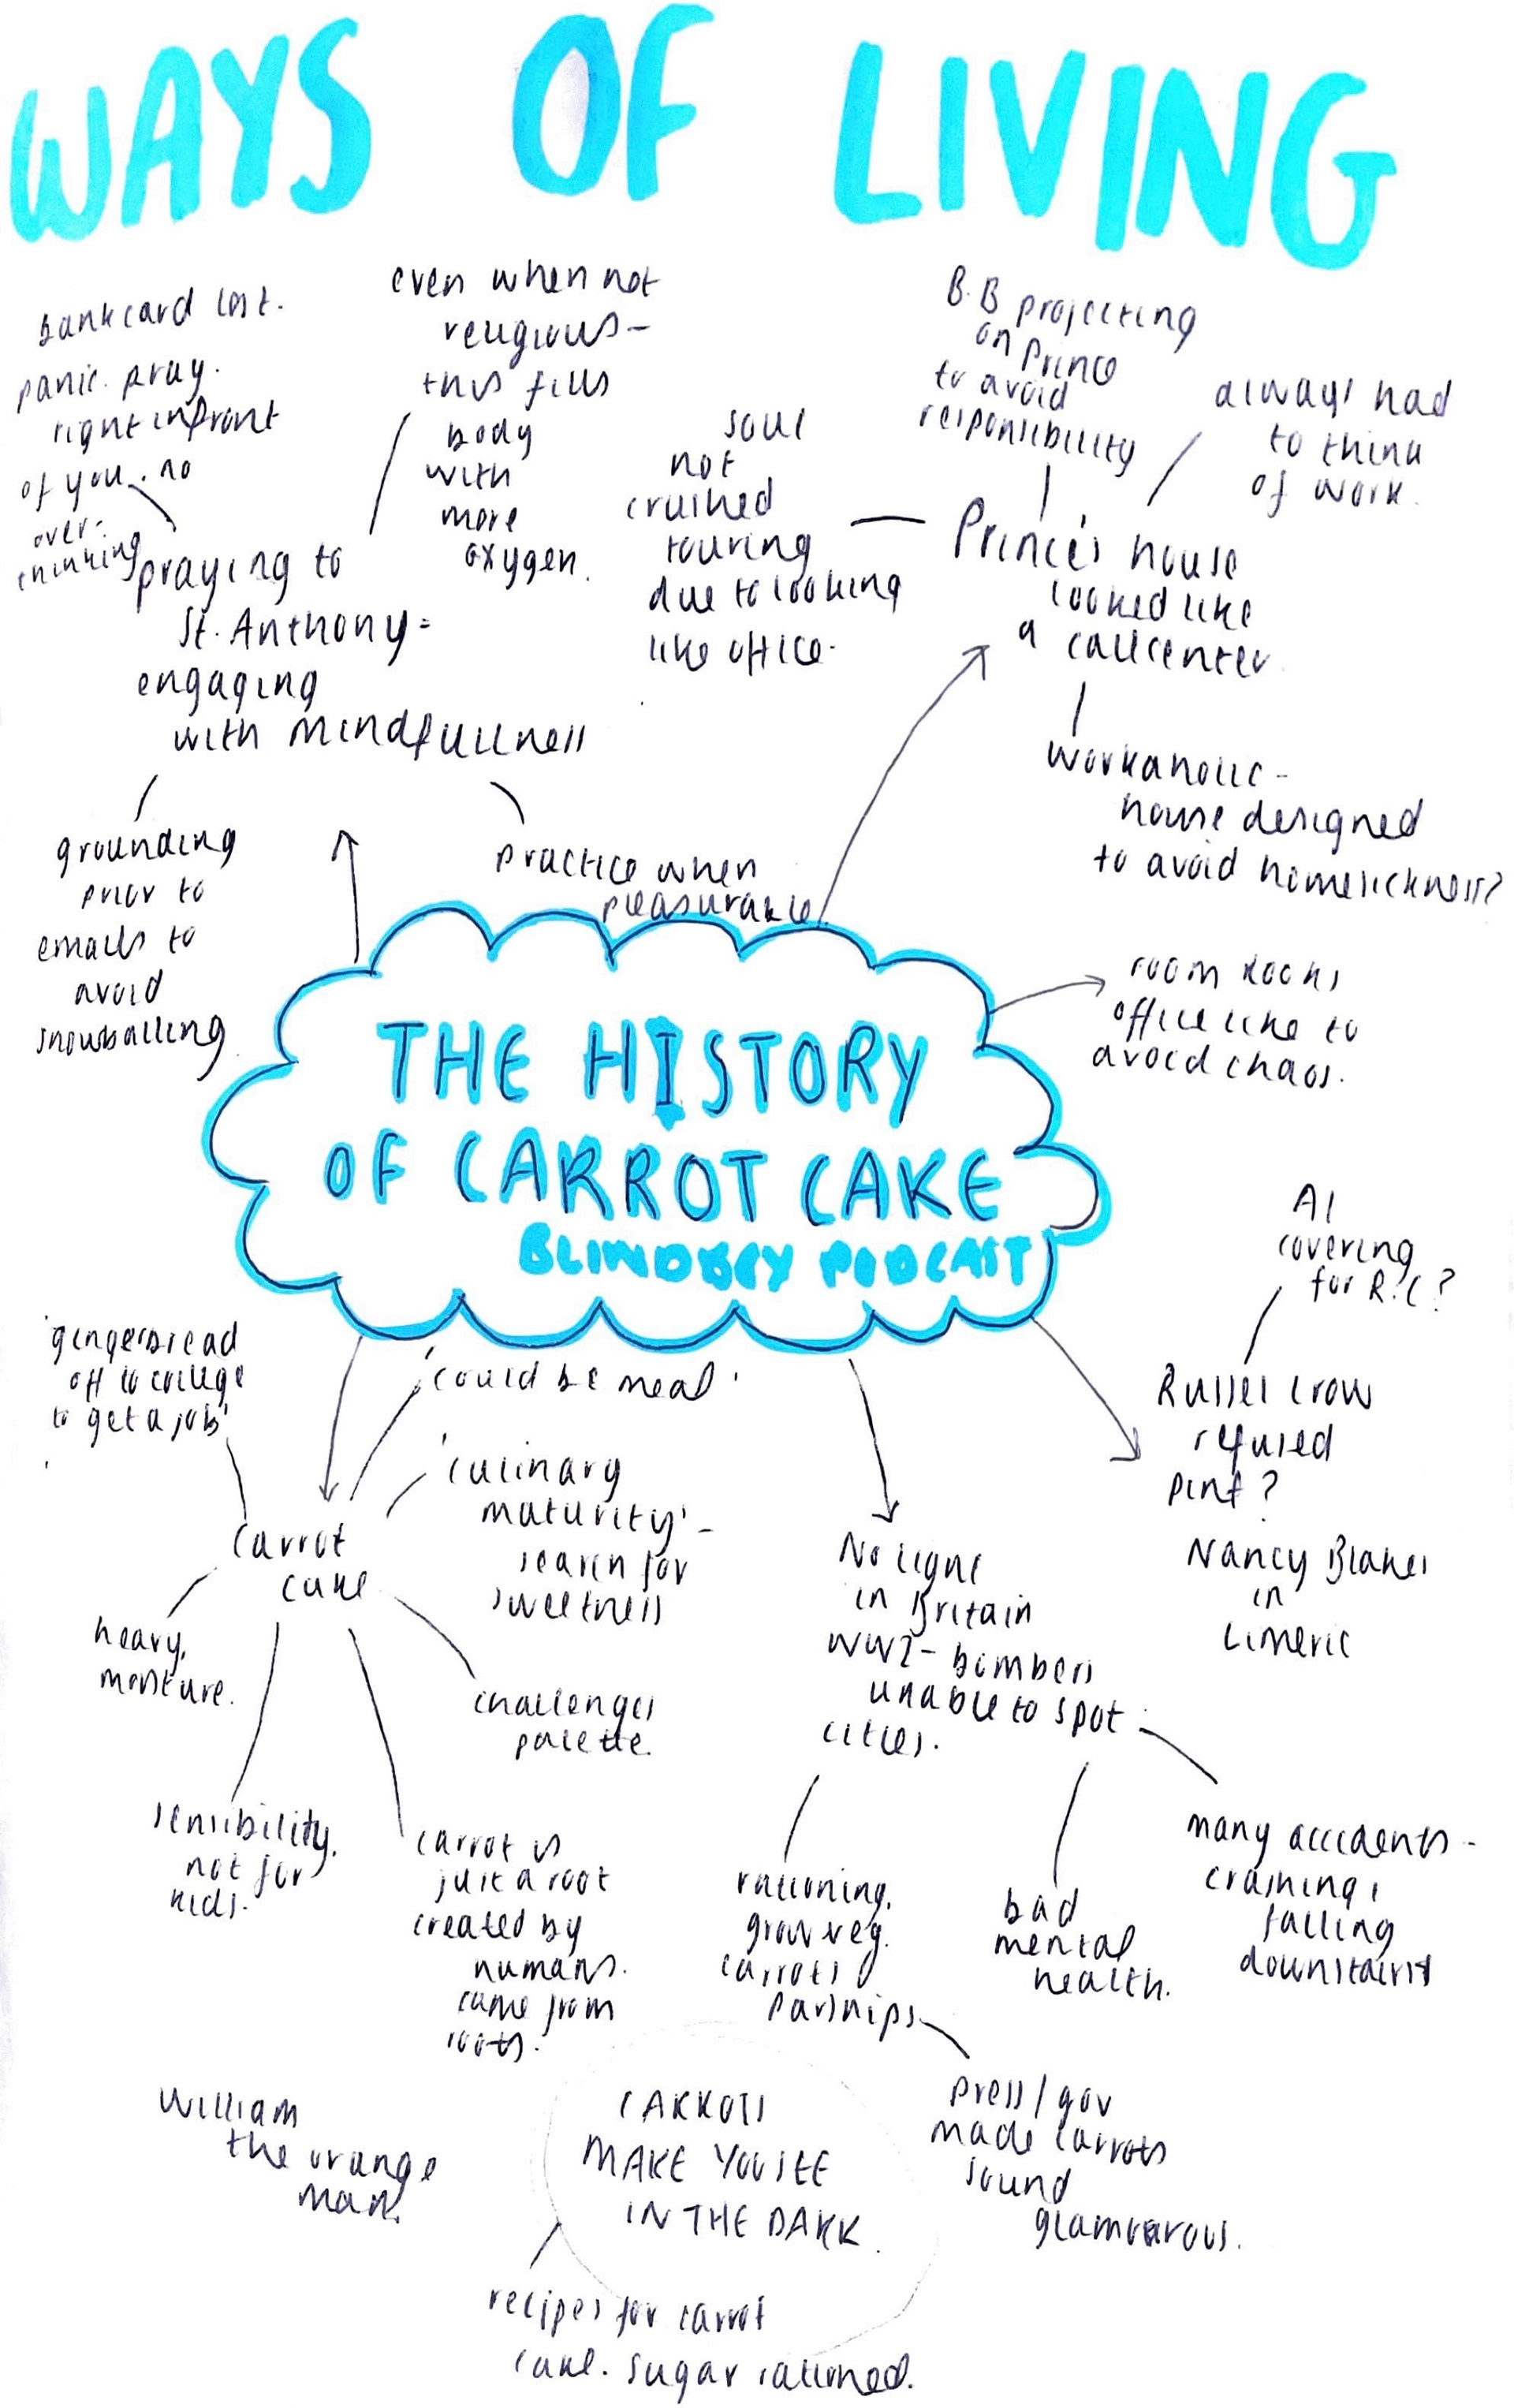 WAYS OF LIVING
bankcard lost.
panic. pray.
right infront
of you. no
over-
thinking
even when not
religious-
this fills
body
with
more
oxygen.
praying to
St. Anthony=
engaging
with mindfullness
grounding
prior to
emails to
avoid
snowballing
practice when
pleasurable
soul
not
crushed
touring
due to looking
like office.
B.B projecting
on Prince
to avoid
responsibility
always had
to think
of work.
Prince's house
looked like
a callcenter
workaholic-
house designed
to avoid homesickness?
room looks
office like to
avoid chaos.
THE HISTORY
OF CARROT CAKE
BLINDBOY PODCAST
AI
covering
for R.C?
Russel Crow
refused
pint?
Nancy Blakes
in
Limeric
'gingerbread
off to college
to get a job'
'could be meal'
'culinary
maturity'-
search for
sweetness
carrot
cake
heavy,
moisture.
challenges
palette.
sensibility,
not for
kids.
carrot is
just a root
created by
humans.
came from
roots.
No light
in Britain
WW2- bombers
unable to spot
cities.
rationing,
grow veg.
carrots
parsnips
bad
mental
health.
many accidents-
crashing,
falling
downstairs
press/gov
made carrots
sound
glamourous.
William
the orange
man.
CARROTS
MAKE YOU SEE
IN THE DARK.
recipes for carrot
cake. sugar rationed.